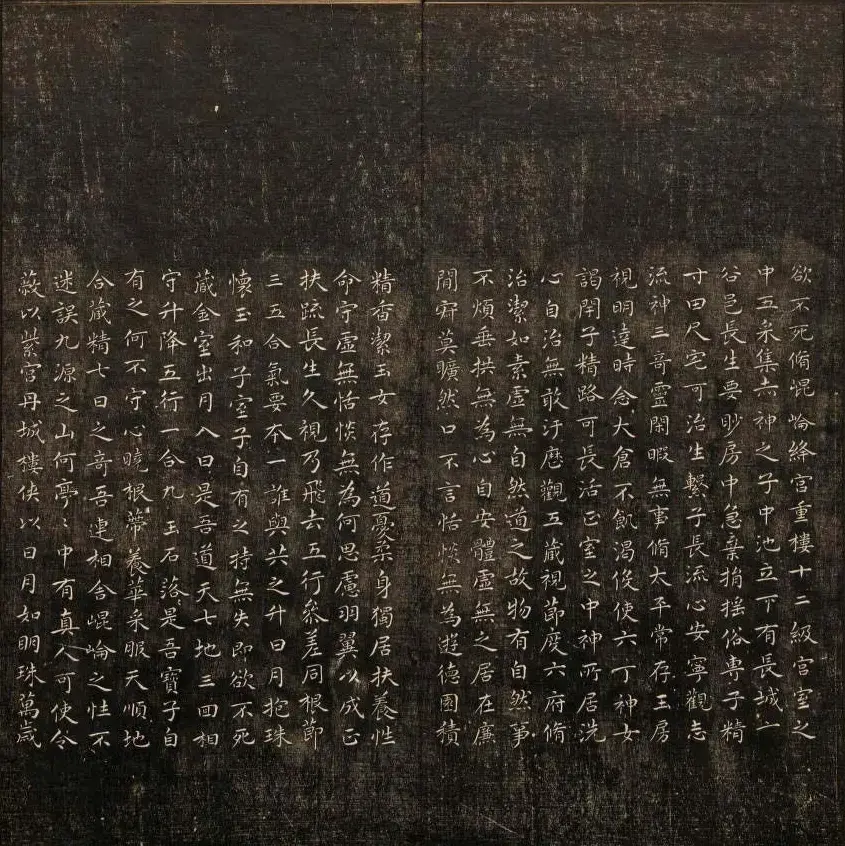 欲不死脩崐崘絳宮重樓十二級宮室之
中五采集赤神之子中池立下有長城一
谷邑長生要眇房中急棄捐揺俗專子精
寸田尺宅可治生繫子長流心安寧觀志
流神三奇靈閑暇無事脩太平常存玉房
視明達時念大倉不飢渴伇使六丁神女
謁閉子精路可長活正室之中神所居洗
心自治無敢汙歷觀五蔵視節度六府脩
治潔如素虛無自然道之故物有自然事
不煩垂拱無為心自安體虛無之居在廉
間寂莫曠然口不言恬惔無為遊德園積
精香潔玉女存作道憂柔身獨居扶養性
命守虛無恬惔無為何思慮羽翼以成正
扶疏長生久視乃飛去五行參差同根節
三五合氣要本一誰與共之升日月抱珠
懷玉和子室子自有之持無失即欲不死
蔵金室出月入日是吾道天七地三回相
守升降五行一合九玉石落是吾寶子自
有之何不守心曉根蔕養華采服天順地
合蔵精七日之奇吾連相舍崐崘之性不
迷誤九源之山何亭〻中有真人可使令
蔽以紫宮丹城樓俠以日月如明珠萬歳